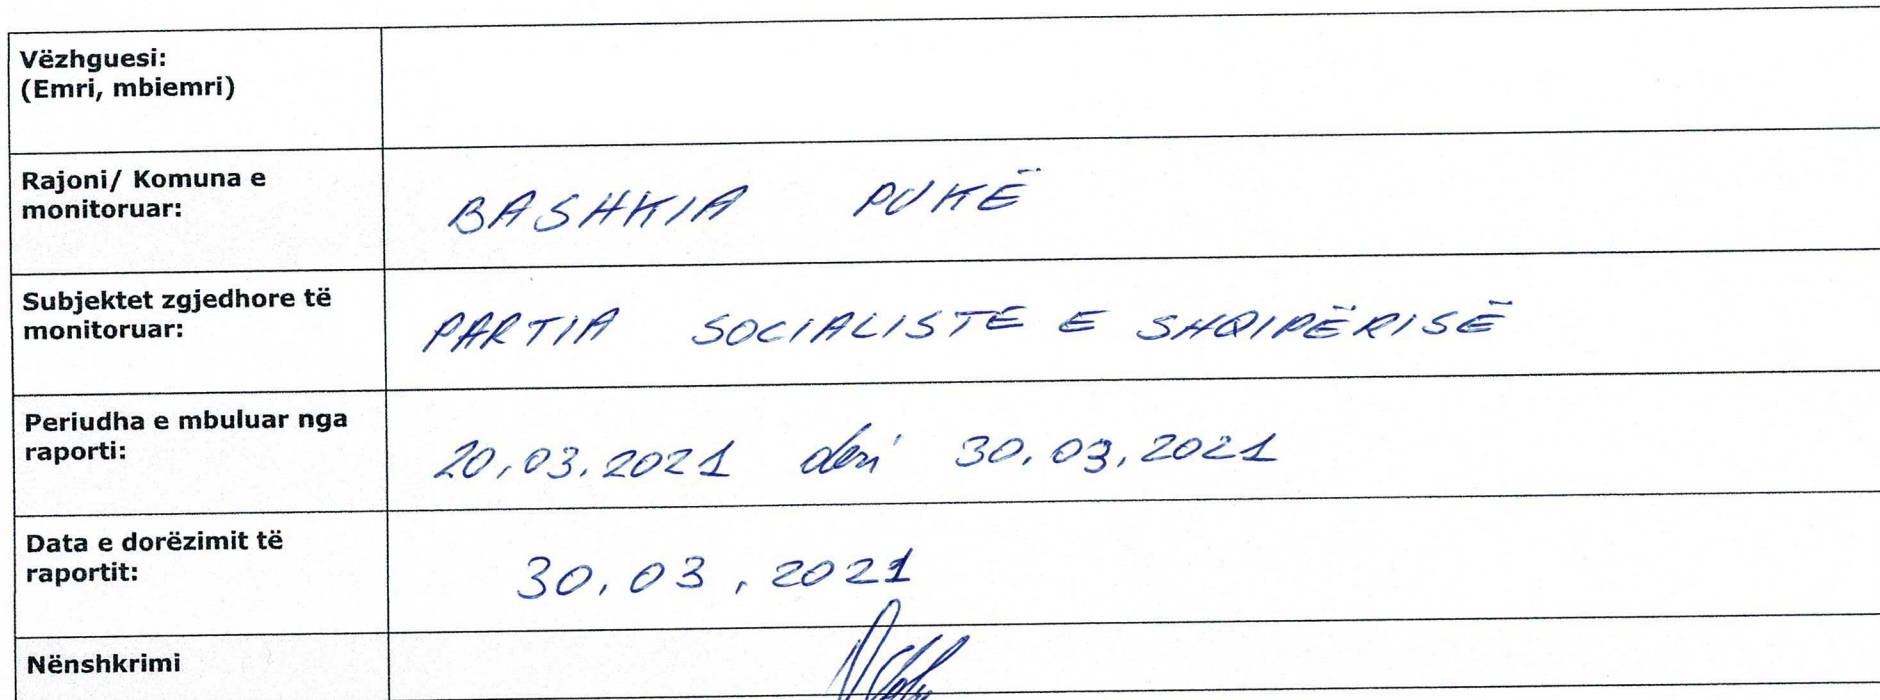 Vëzhguesi:
(Emri, mbiemri)
Rajoni/ Komuna e
monitoruar:
BASHKIA PUKË
Subjektet zgjedhore të
monitoruar:
PARTIA SOCIALISTE E SHQIPËRISË
Periudha e mbuluar nga
raporti:
20.03.2021 deri 30.03.2021
Data e dorëzimit të
raportit:
30.03.2021
Nënshkrimi